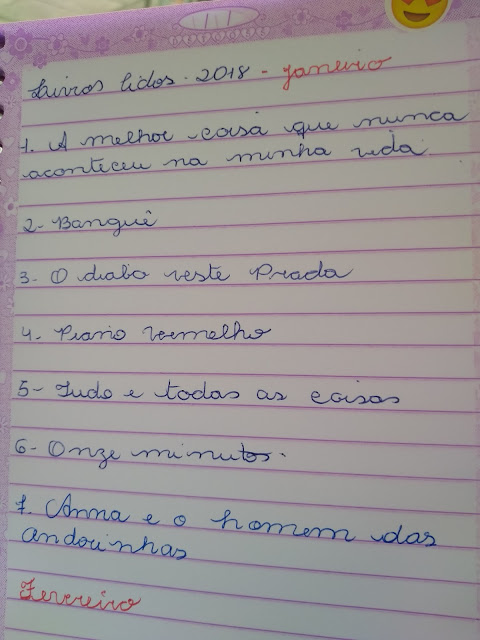 Livros lidos - 2018 - janeiro
1. A melhor coisa que nunca
aconteceu na minha vida
2- Banguê
3. O diabo veste Prada
4. Piano vermelho
5- Tudo e todas as coisas
6- Onze minutos.
7. Anna e o homem das
andorinhas
Fevereiro